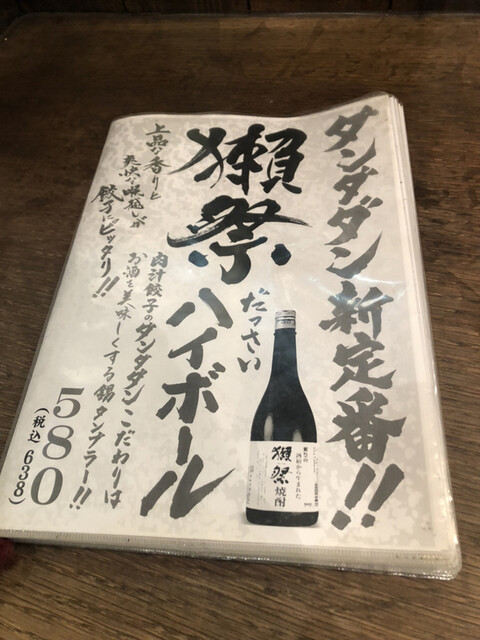 ダンダダン新定番!!
獺祭ハイボール
だっさい
上品な香りと
爽快な喉越しが
餃子にピッタリ!!
肉汁餃子のダンダダンこだわりは
お酒を美味しくする錫タンブラー!!
580
(税込 638)
獺祭
焼酎
酒粕から生まれた